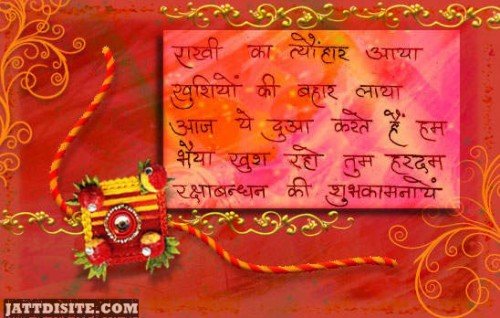 राखी का त्यौंहार आया
खुशियों की बहार लाया
आज ये दुआ करते हैं हम
भैया खुश रहो तुम हरदम
रक्षाबन्धन की शुभकामनायें
JATTDISITE.COM